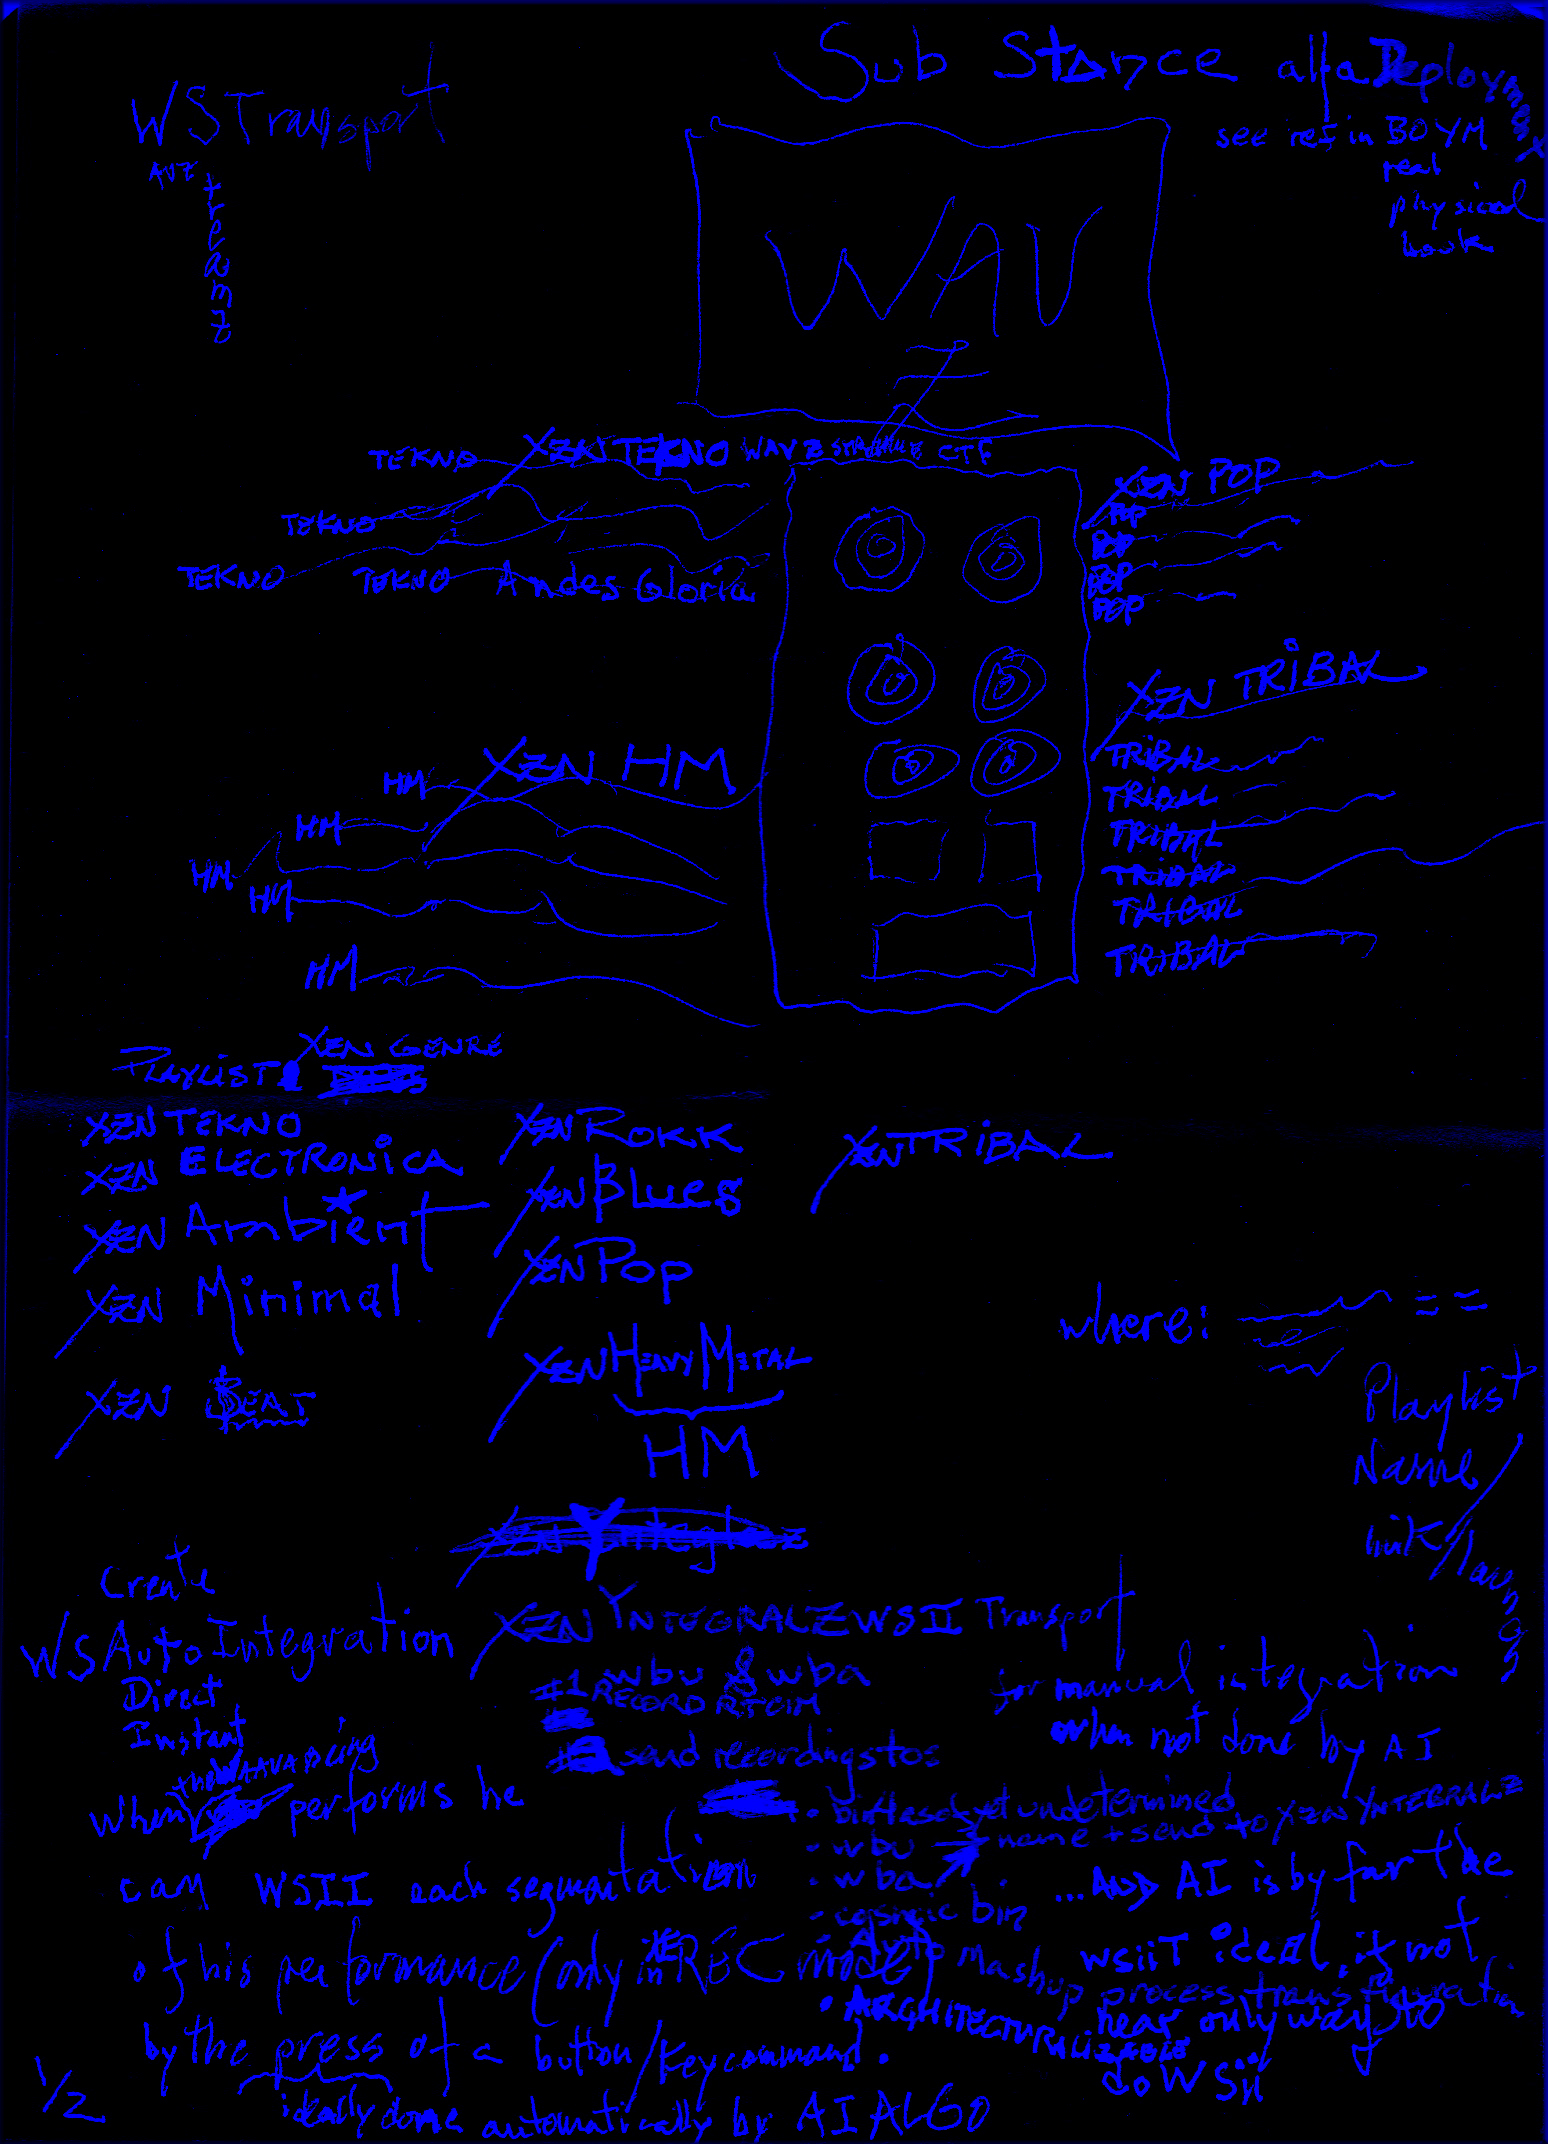 Sub Stance alfa Deployment
WSTransport
see ref in BOYM
real
physical
book
AVZ
treamz
WAV
Z
TEKNO XZN TEKNO WAVZ CTF
TEKNO
TEKNO TEKNO Andes Gloria
XZN POP
POP
POP
POP
POP
XZN TRiBAL
TRiBAL
TRiBAL
TRiBAL
TRiBAL
TRiBAL
TRiBAL
XZN HM
HM
HM
HM
HM
HM
PLAYLIST XZN GENRE
XZN TEKNO
XZN ELECTRONiCA
XZN Ambient
XZN Minimal
XZN BEAT
XZN ROKK
XZN Blues
XZN Pop
XZN HEAVY METAL
HM
XZN TRiBAL
where: ==
Playlist
Name
link/
XZN Ynteglaz
Create
WSAutoIntegration
Direct
Instant
when the performs he
can WSII each segmentation
of his performance (only in REC mode)
by the press of a button/Keycommand.
ideally done automatically by AI ALGO
XZN YNTEGRALZ WSII Transport
wbu & wba
#1 RECORD
send recordings to
for manual integration
when not done by AI
• yet undetermined
• wbu → name + send to XZN YNTEGRALZ
• wba
• cosmic bin
• Auto Mashup process transfiguration
• ARCHITECTURALIZABLE
... AND AI is by far the
wsiiT ideal, if not
near only way to
do WSii
1/2